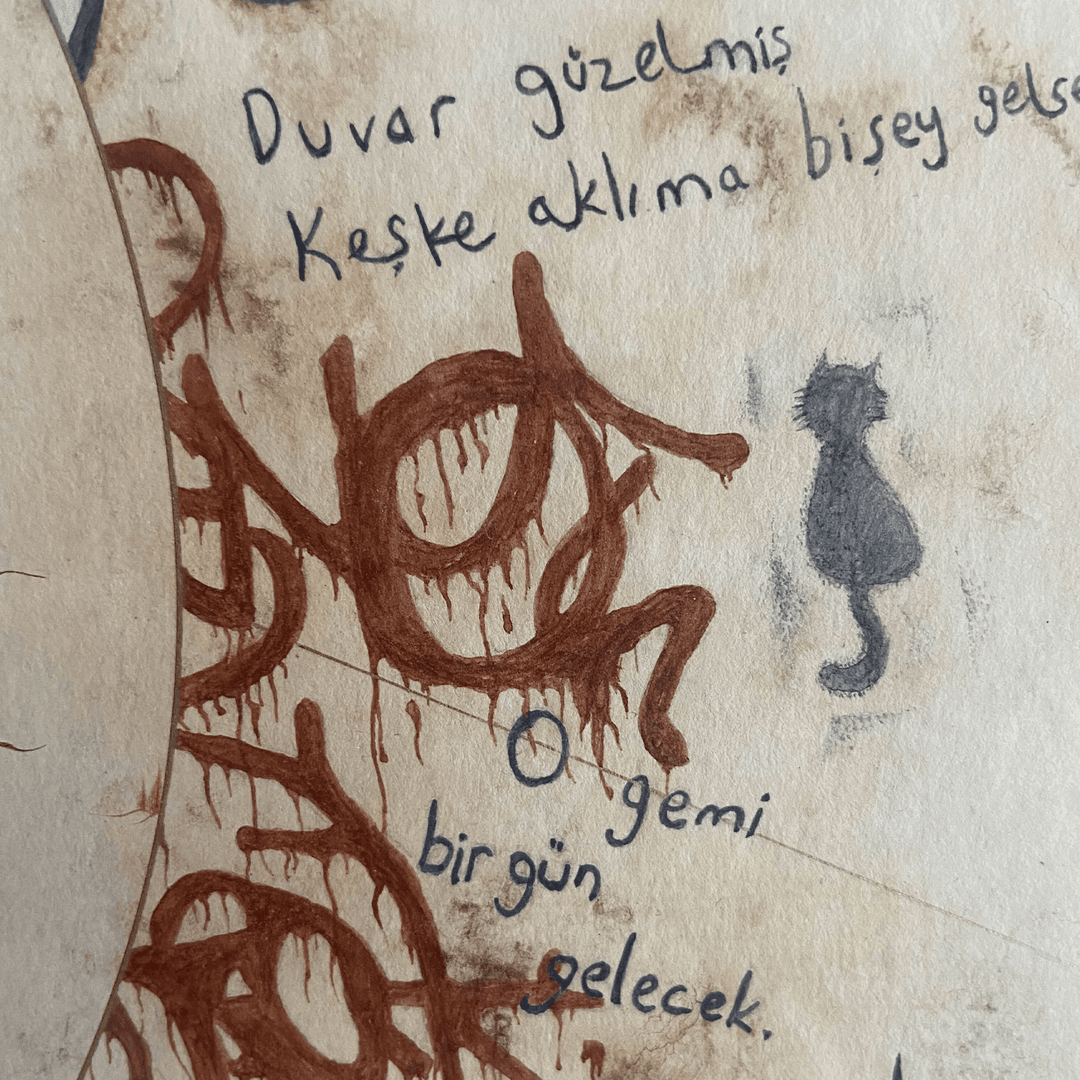 Duvar güzelmiş
Keşke aklıma bişey gelse
O gemi
bir gün
gelecek.